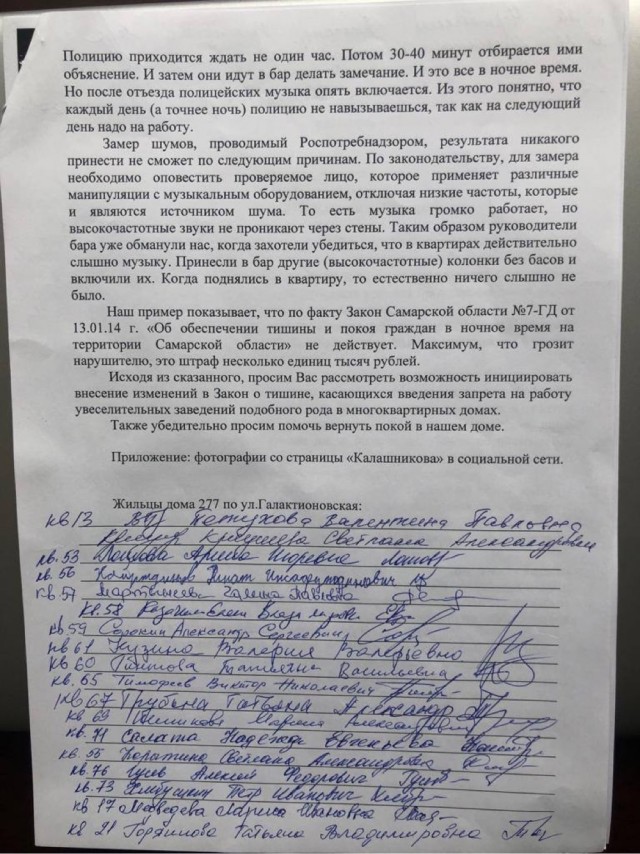 Полицию приходится ждать не один час. Потом 30-40 минут отбирается ими
объяснение. И затем они идут в бар делать замечание. И это все в ночное время.
Но после отъезда полицейских музыка опять включается. Из этого понятно, что
каждый день (а точнее ночь) полицию не навызываешься, так как на следующий
день надо на работу.
Замер шумов, проводимый Роспотребнадзором, результата никакого
принести не сможет по следующим причинам. По законодательству, для замера
необходимо оповестить проверяемое лицо, которое применяет различные
манипуляции с музыкальным оборудованием, отключая низкие частоты, которые
и являются источником шума. То есть музыка громко работает, но
высокочастотные звуки не проникают через стены. Таким образом руководители
бара уже обманули нас, когда захотели убедиться, что в квартирах действительно
слышно музыку. Принесли в бар другие (высокочастотные) колонки без басов и
включили их. Когда поднялись в квартиру, то естественно ничего слышно не
было.
Наш пример показывает, что по факту Закон Самарской области №7-ГД от
13.01.14 г. «Об обеспечении тишины и покоя граждан в ночное время на
территории Самарской области» не действует. Максимум, что грозит
нарушителю, это штраф несколько единиц тысяч рублей.
Исходя из сказанного, просим Вас рассмотреть возможность инициировать
внесение изменений в Закон о тишине, касающихся введения запрета на работу
увеселительных заведений подобного рода в многоквартирных домах.
Также убедительно просим помочь вернуть покой в нашем доме.
Приложение: фотографии со страницы «Калашникова» в социальной сети.
Жильцы дома 277 по ул.Галактионовская:
кв 13 Петухова Валентина Павловна
Светлана Александровна
кв. 53 Игоревна
кв. 56
кв. 57 Галина
кв. 58
кв 59 Сорокин Александр Сергеевич
кв 61 Валерия Валерьевна
кв 60 Татьяна Васильевна
кв. 65 Тимофеев Виктор Николаевич
кв 67 Татьяна Александр
кв 69 Александровна
кв. 71 Надежда Евгеньевна
кв. 55 Светлана Александровна
кв. 76 Алексей Федорович
кв. 73 Петр Иванович
кв 17 Медведева Лариса Ивановна
кв 21 Татьяна Владимировна